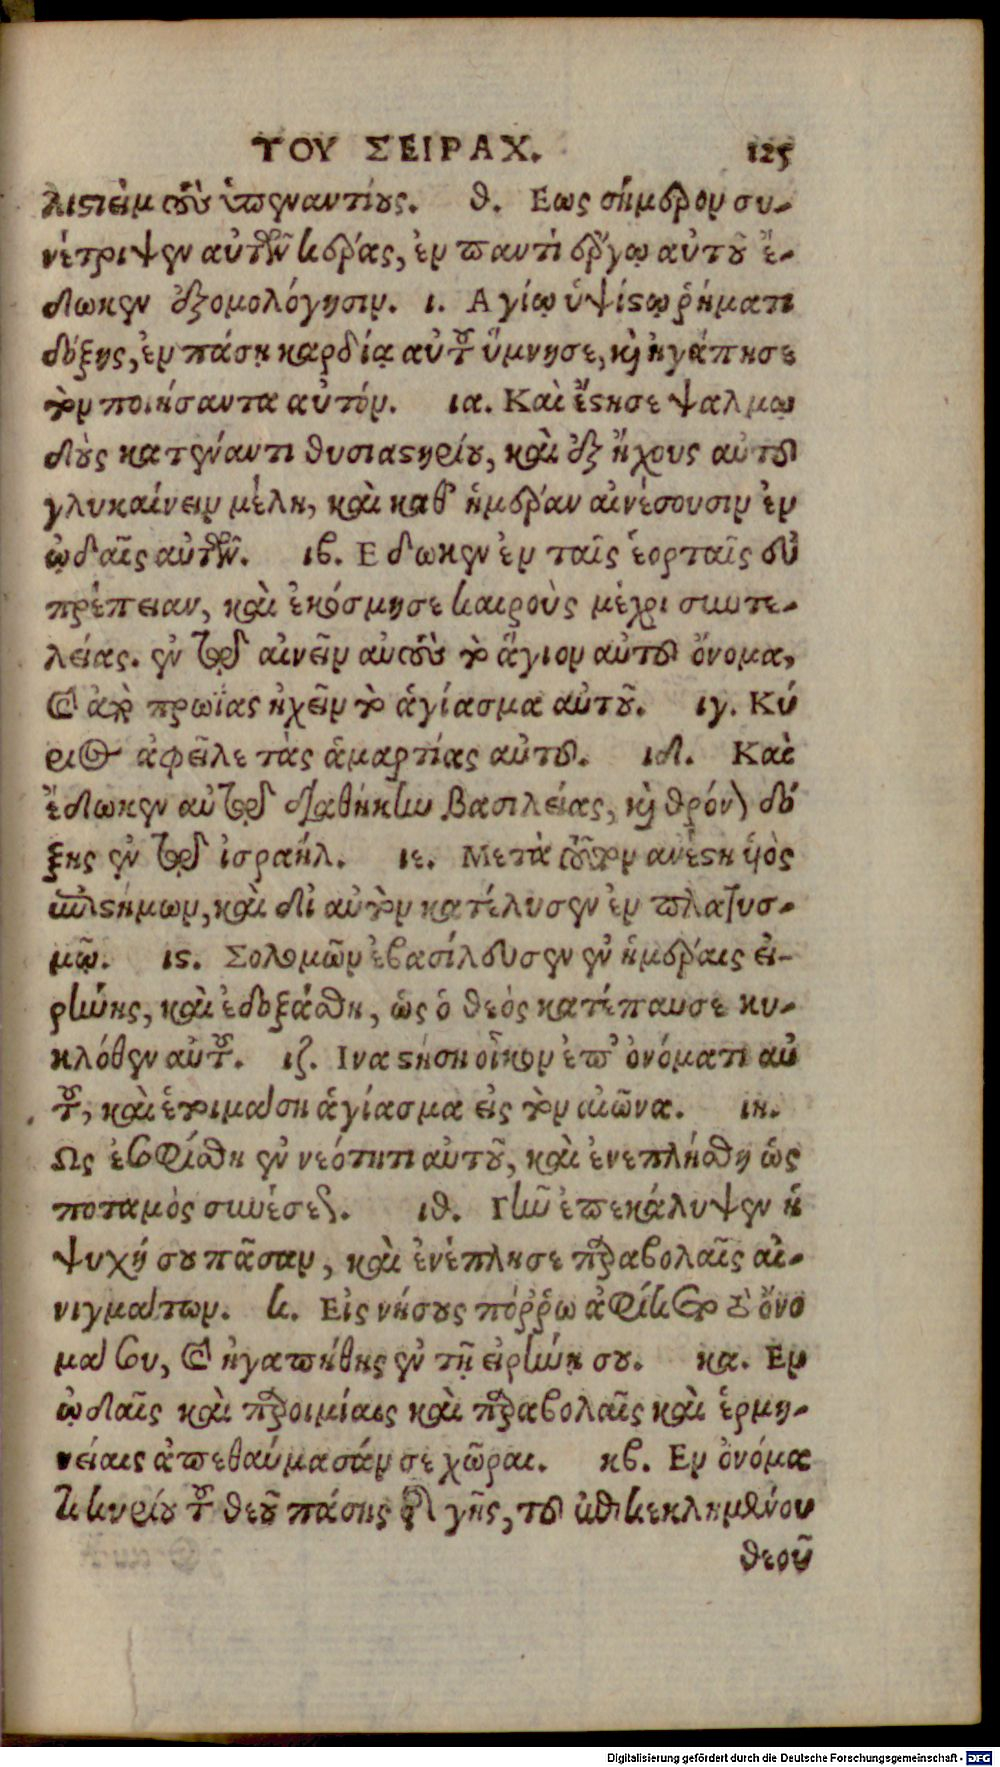 ΤΟΥ ΣΕΙΡΑΧ. 125
λιστιεὶμ τοὺς ὑπεναντίους. θ. Εως σήμερον συ-
νέτριψεν αὐτῶν κέρας, ἐν παντὶ ἔργῳ αὐτοῦ ἔ-
δωκεν ἐξομολόγησιν. ι. Αγίῳ ὑψίστῳ ῥήματι
δόξης, ἐν πάσῃ καρδίᾳ αὐτοῦ ὕμνησε, καὶ ἠγάπησε
τὸν ποιήσαντα αὐτόν. ια. Καὶ ἔστησε ψαλμῳ
δοὺς κατέναντι θυσιαστηρίου, καὶ ἐξ ἤχους αὐτοῦ
γλυκαίνειν μέλη, καὶ καθ' ἡμέραν αἰνέσουσιν ἐν
ᾠδαῖς αὐτῶν. ιβ. Εδωκεν ἐν ταῖς ἑορταῖς εὐ
πρέπειαν, καὶ ἐκόσμησε καιροὺς μέχρι συντε-
λείας. ἐν τῷ αἰνεῖν αὐτοὺς τὸ ἅγιον αὐτοῦ ὄνομα,
καὶ ἀπὸ πρωΐας ἠχεῖν τὸ ἁγίασμα αὐτοῦ. ιγ. Κύ
ριος ἀφεῖλε τὰς ἁμαρτίας αὐτοῦ. ιδ. Καὶ
ἔδωκεν αὐτῷ διαθήκην βασιλείας, καὶ θρόνον δό
ξης ἐν τῷ ἰσραήλ. ιε. Μετὰ τοῦτον ἀνέστη υἱὸς
ἐπιστήμων, καὶ δι' αὐτὸν κατέλυσεν ἐν πλατυσ-
μῷ. ις. Σολομῶν ἐβασίλευσεν ἐν ἡμέραις εἰ-
ρήνης, καὶ ἐδοξάσθη, ὡς ὁ θεὸς κατέπαυσε κυ-
κλόθεν αὐτοῦ. ιζ. Ινα στήσῃ οἶκον ἐπ' ὀνόματι αὐ
τοῦ, καὶ ἑτοιμάσῃ ἁγίασμα εἰς τὸν αἰῶνα. ιη.
Ως ἐσοφίσθη ἐν νεότητι αὐτοῦ, καὶ ἐνεπλήσθη ὡς
ποταμὸς συνέσεως. ιθ. Γῆν ἐπεκάλυψεν ἡ
ψυχή σου πᾶσαν, καὶ ἐνέπλησε παραβολαῖς αἰ-
νιγμάτων. κ. Εἰς νήσους πόῤῥω ἀφίκετο τὸ ὄνο
μά σου, καὶ ἠγαπήθης ἐν τῇ εἰρήνῃ σου. κα. Εν
ᾠδαῖς καὶ παροιμίαις καὶ παραβολαῖς καὶ ἑρμη-
νείαις ἀπεθαύμασάν σε χῶραι. κβ. Εν ὀνόμα
τι κυρίου τοῦ θεοῦ πάσης τῆς γῆς, τοῦ ἐπικεκλημένου
θεοῦ
Digitalisierung gefördert durch die Deutsche Forschungsgemeinschaft - DFG